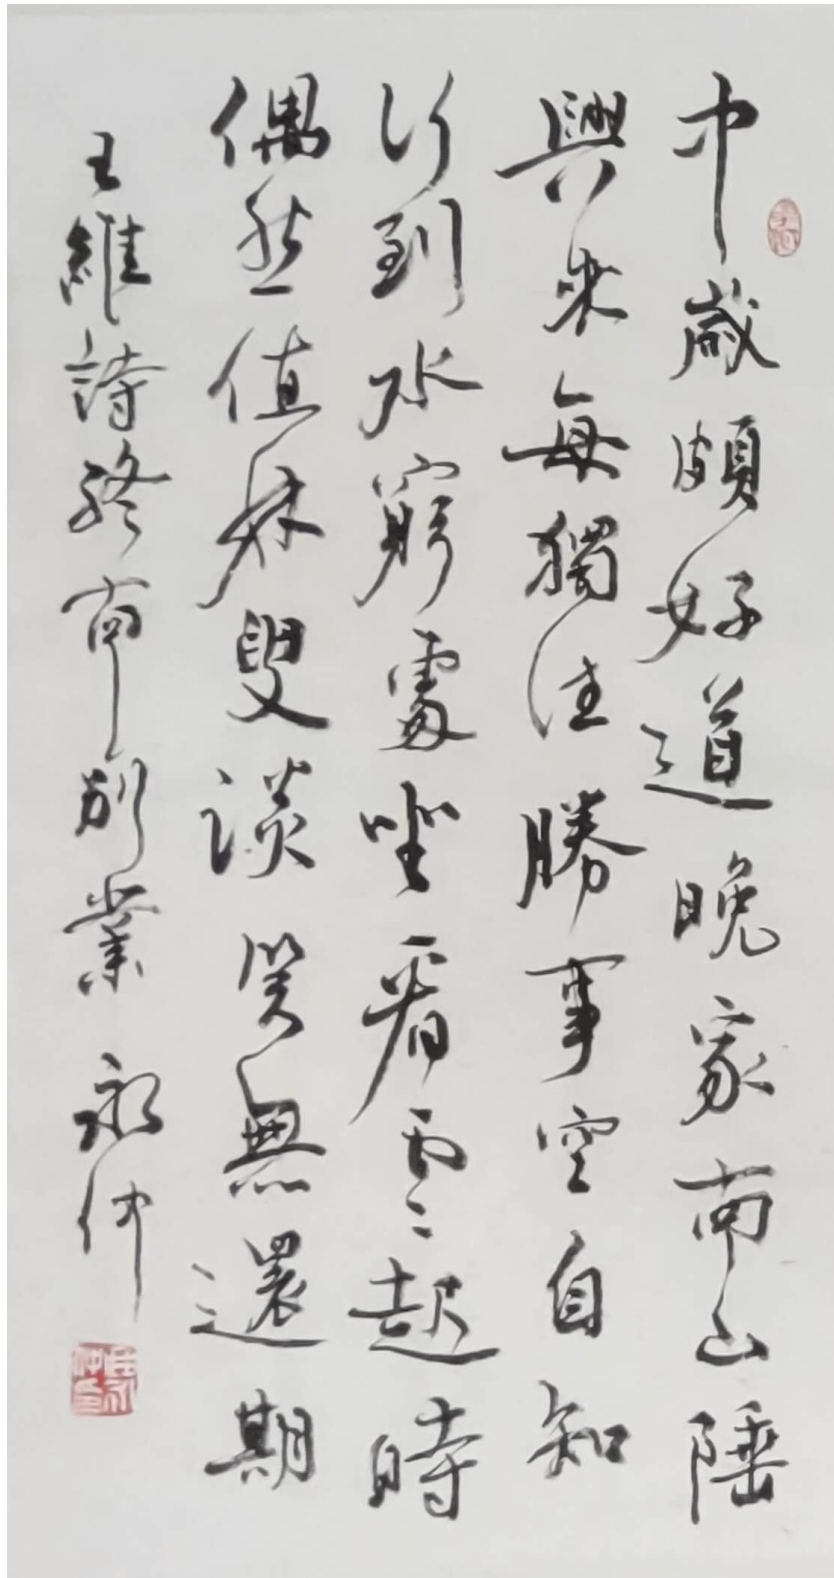 中歲頗好道晚家南山陲
興來每獨往勝事空自知
行到水窮處坐看雲起時
偶然值林叟談笑無還期
王維詩終南別業 永仲